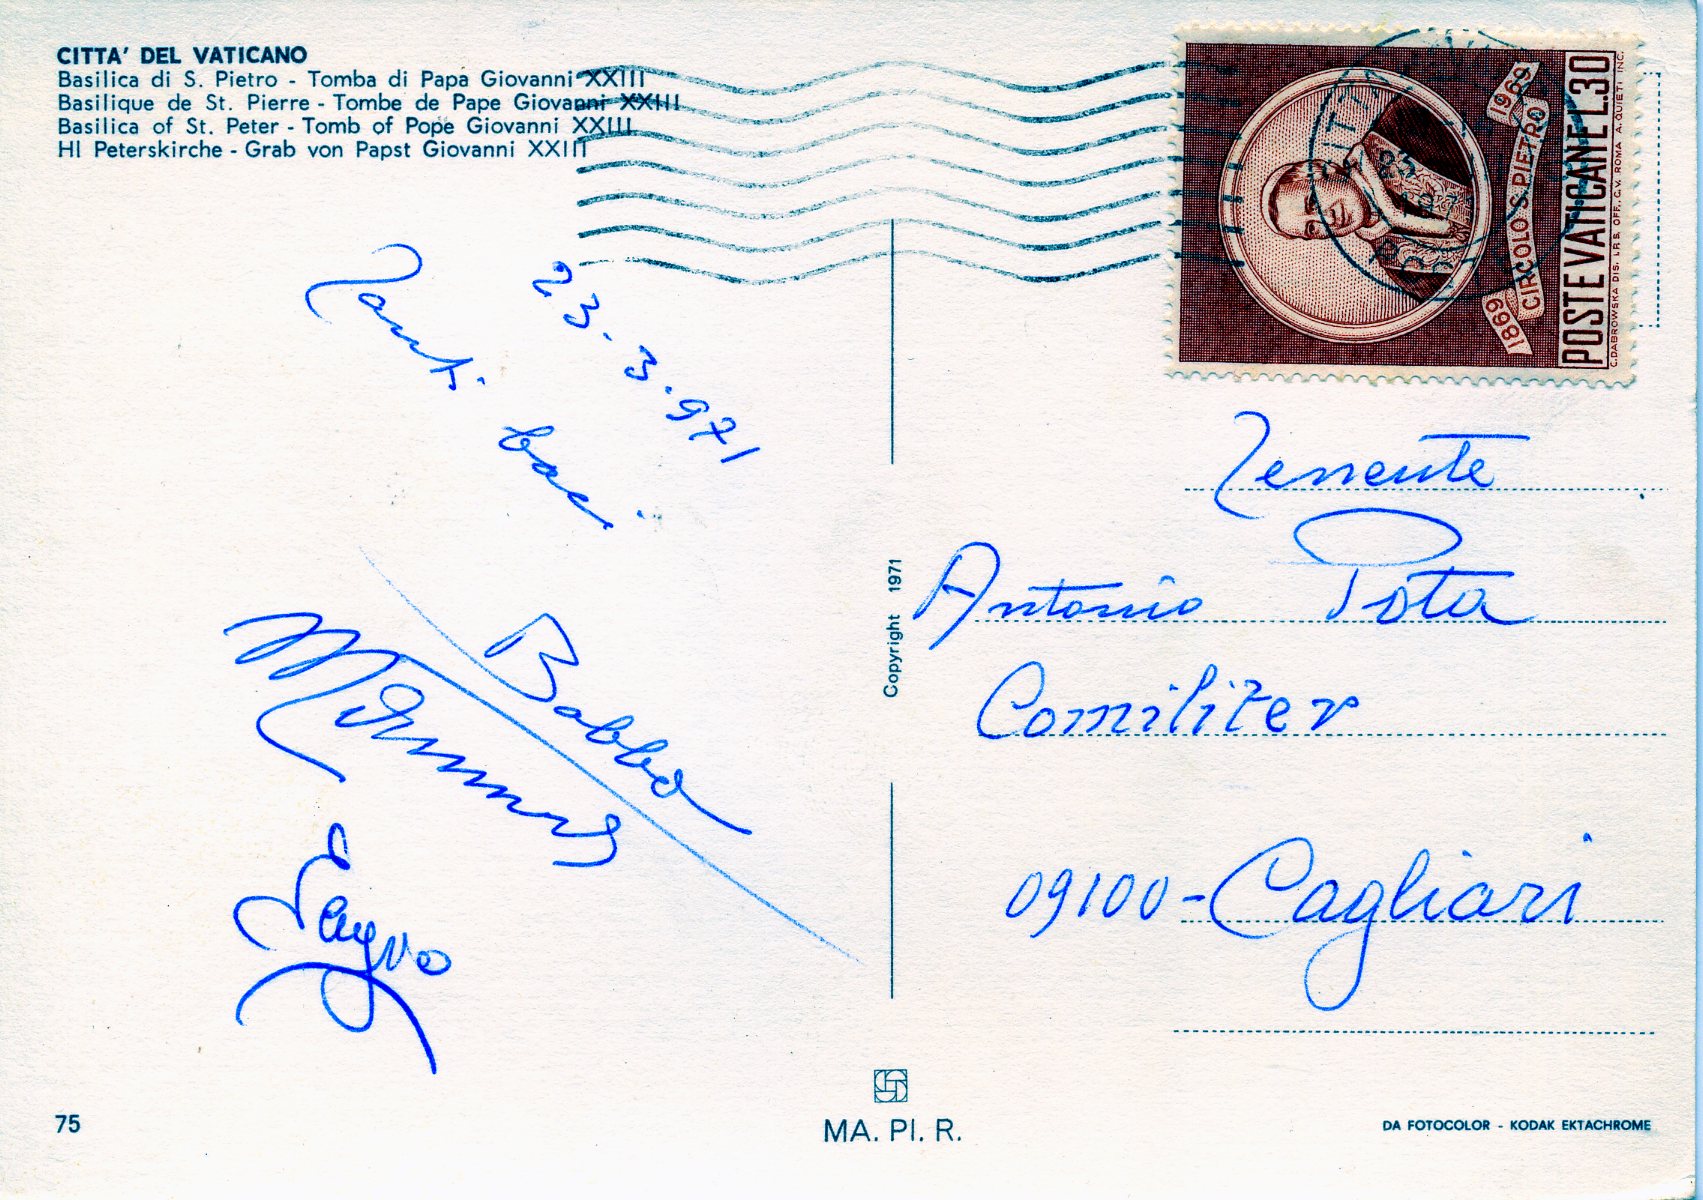 CITTA' DEL VATICANO
Basilica di S. Pietro - Tomba di Papa Giovanni XXIII
Basilique de St. Pierre - Tombe de Pape Giovanni XXIII
Basilica of St. Peter - Tomb of Pope Giovanni XXIII
Hl Peterskirche - Grab von Papst Giovanni XXIII
23-3-971
Tanti baci
Babbo
Mamma
POSTE VATICANE L.30
CIRCOLO S. PIETRO
1869
1969
C. DABROWSKA DIS. I.P.S. OFF. C.V. ROMA A. QUIETI INC.
23
Tenente
Antonio Pota
Comiliter
09100-Cagliari
Copyright 1971
75
MA. PI. R.
DA FOTOCOLOR - KODAK EKTACHROME